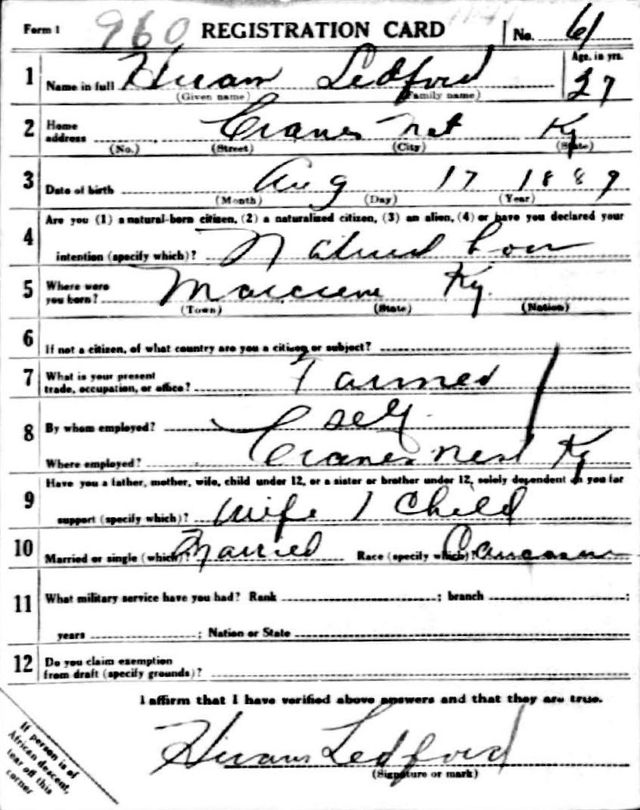 Form 1 960 REGISTRATION CARD No. 61
1 Name in full Hiram Ledford Age, in yrs. 27
(Given name) (Family name)
2 Home address Cranes Nest Ky
(No.) (Street) (City) (State)
3 Date of birth Aug 17 1889
(Month) (Day) (Year)
4 Are you (1) a natural-born citizen, (2) a naturalized citizen, (3) an alien, (4) or have you declared your
intention (specify which)? Natural born
5 Where were you born? Ky.
(Town) (State) (Nation)
6 If not a citizen, of what country are you a citizen or subject?
7 What is your present trade, occupation, or office? Farmer
8 By whom employed? self
Where employed? Cranes nest Ky
9 Have you a father, mother, wife, child under 12, or a sister or brother under 12, solely dependent on you for
support (specify which)? wife 1 Child
10 Married or single (which)? Married Race (specify which)? Caucasian
11 What military service have you had? Rank ; branch ;
years ; Nation or State
12 Do you claim exemption from draft (specify grounds)?
I affirm that I have verified above answers and that they are true.
Hiram Ledford
(Signature or mark)
If person is of
African descent,
tear off this
corner